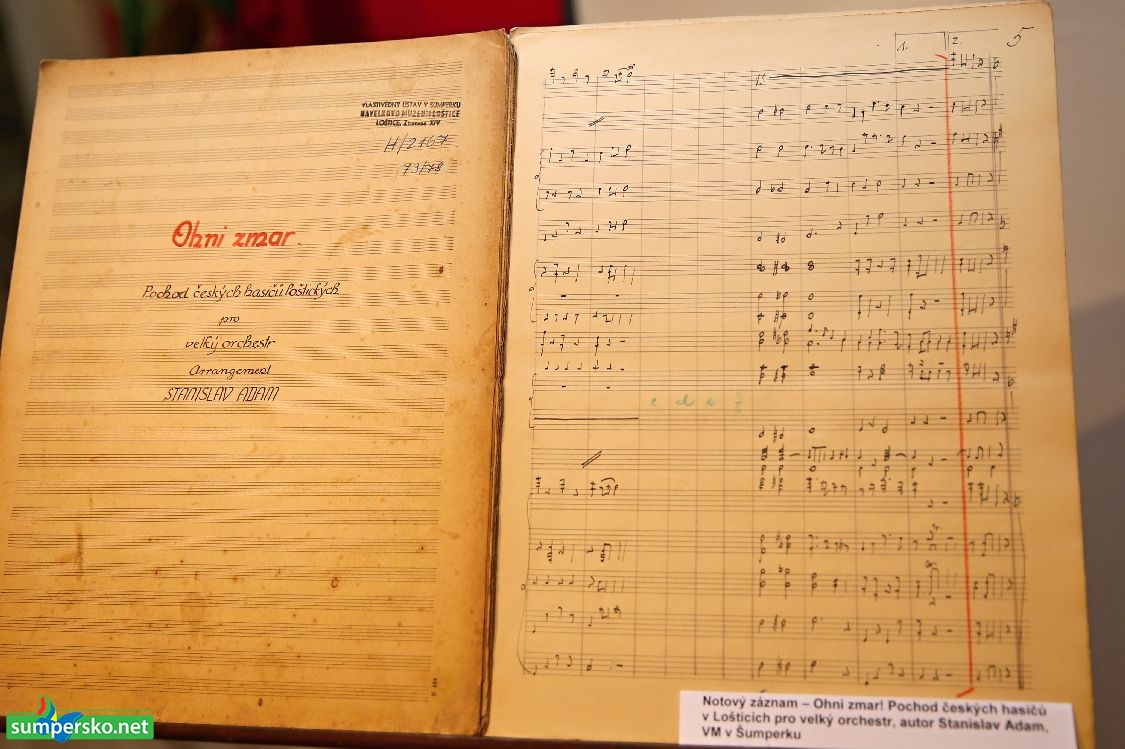 VLASTIVĚDNÝ ÚSTAV V ŠUMPERKU
HAVELKOVO MUZEUM LOŠTICE
LOŠTICE, Ztracená XIV
H/2167
73/78
Ohni zmar.
Pochod českých hasičů loštických
pro
velký orchestr
Arrangement
STANISLAV ADAM
1.
2.
5
c d e
Notový záznam – Ohni zmar! Pochod českých hasičů
v Lošticích pro velký orchestr, autor Stanislav Adam,
VM v Šumperku
sumpersko.net